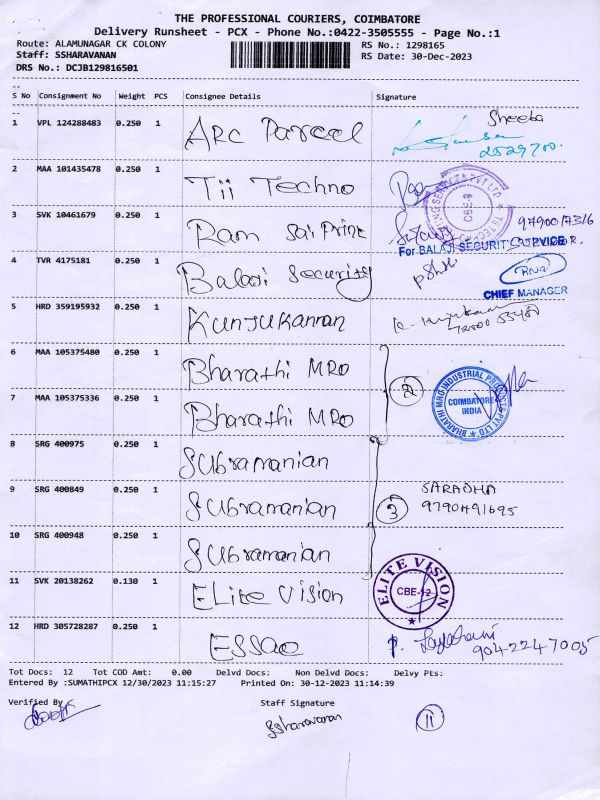 THE PROFESSIONAL COURIERS, COIMBATORE
Delivery Runsheet - PCX - Phone No.:0422-3505555 - Page No.:1
Route: ALAMUNAGAR CK COLONY RS No.: 1298165
Staff: SSHARAVANAN RS Date: 30-Dec-2023
DRS No.: DCJB129816501
S No Consignment No Weight PCS Consignee Details Signature
Sheeba
1 VPL 124288483 0.250 1 ARC Parcel
2 MAA 101435478 0.250 1 Tii Techno
3 SVK 10461679 0.250 1 Ram Sai Print
For BALAJI SECURITY SERVICE
4 TVR 4175181 0.250 1 Balaji Security
CHIEF MANAGER
5 HRD 359195932 0.250 1 Kunjukannan
6 MAA 105375480 0.250 1 Bharathi MRO
2
BHARATHI MRO INDUSTRIAL PRODUCTS PVT LTD
COIMBATORE
INDIA
7 MAA 105375336 0.250 1 Bharathi MRO
8 SRG 400975 0.250 1 Subramanian
9 SRG 400849 0.250 1 Subramanian
3 SARADHA
9790491695
10 SRG 400948 0.250 1 Subramanian
11 SVK 20138262 0.130 1 Elite Vision
ELITE VISION
CBE-12
12 HRD 305728287 0.250 1 ESSAE
9042247005
Tot Docs: 12 Tot COD Amt: 0.00 Delvd Docs: Non Delvd Docs: Delvy Pts:
Entered By :SUMATHIPCX 12/30/2023 11:15:27 Printed On: 30-12-2023 11:14:39
Verified By Staff Signature
Ssharavanan 11